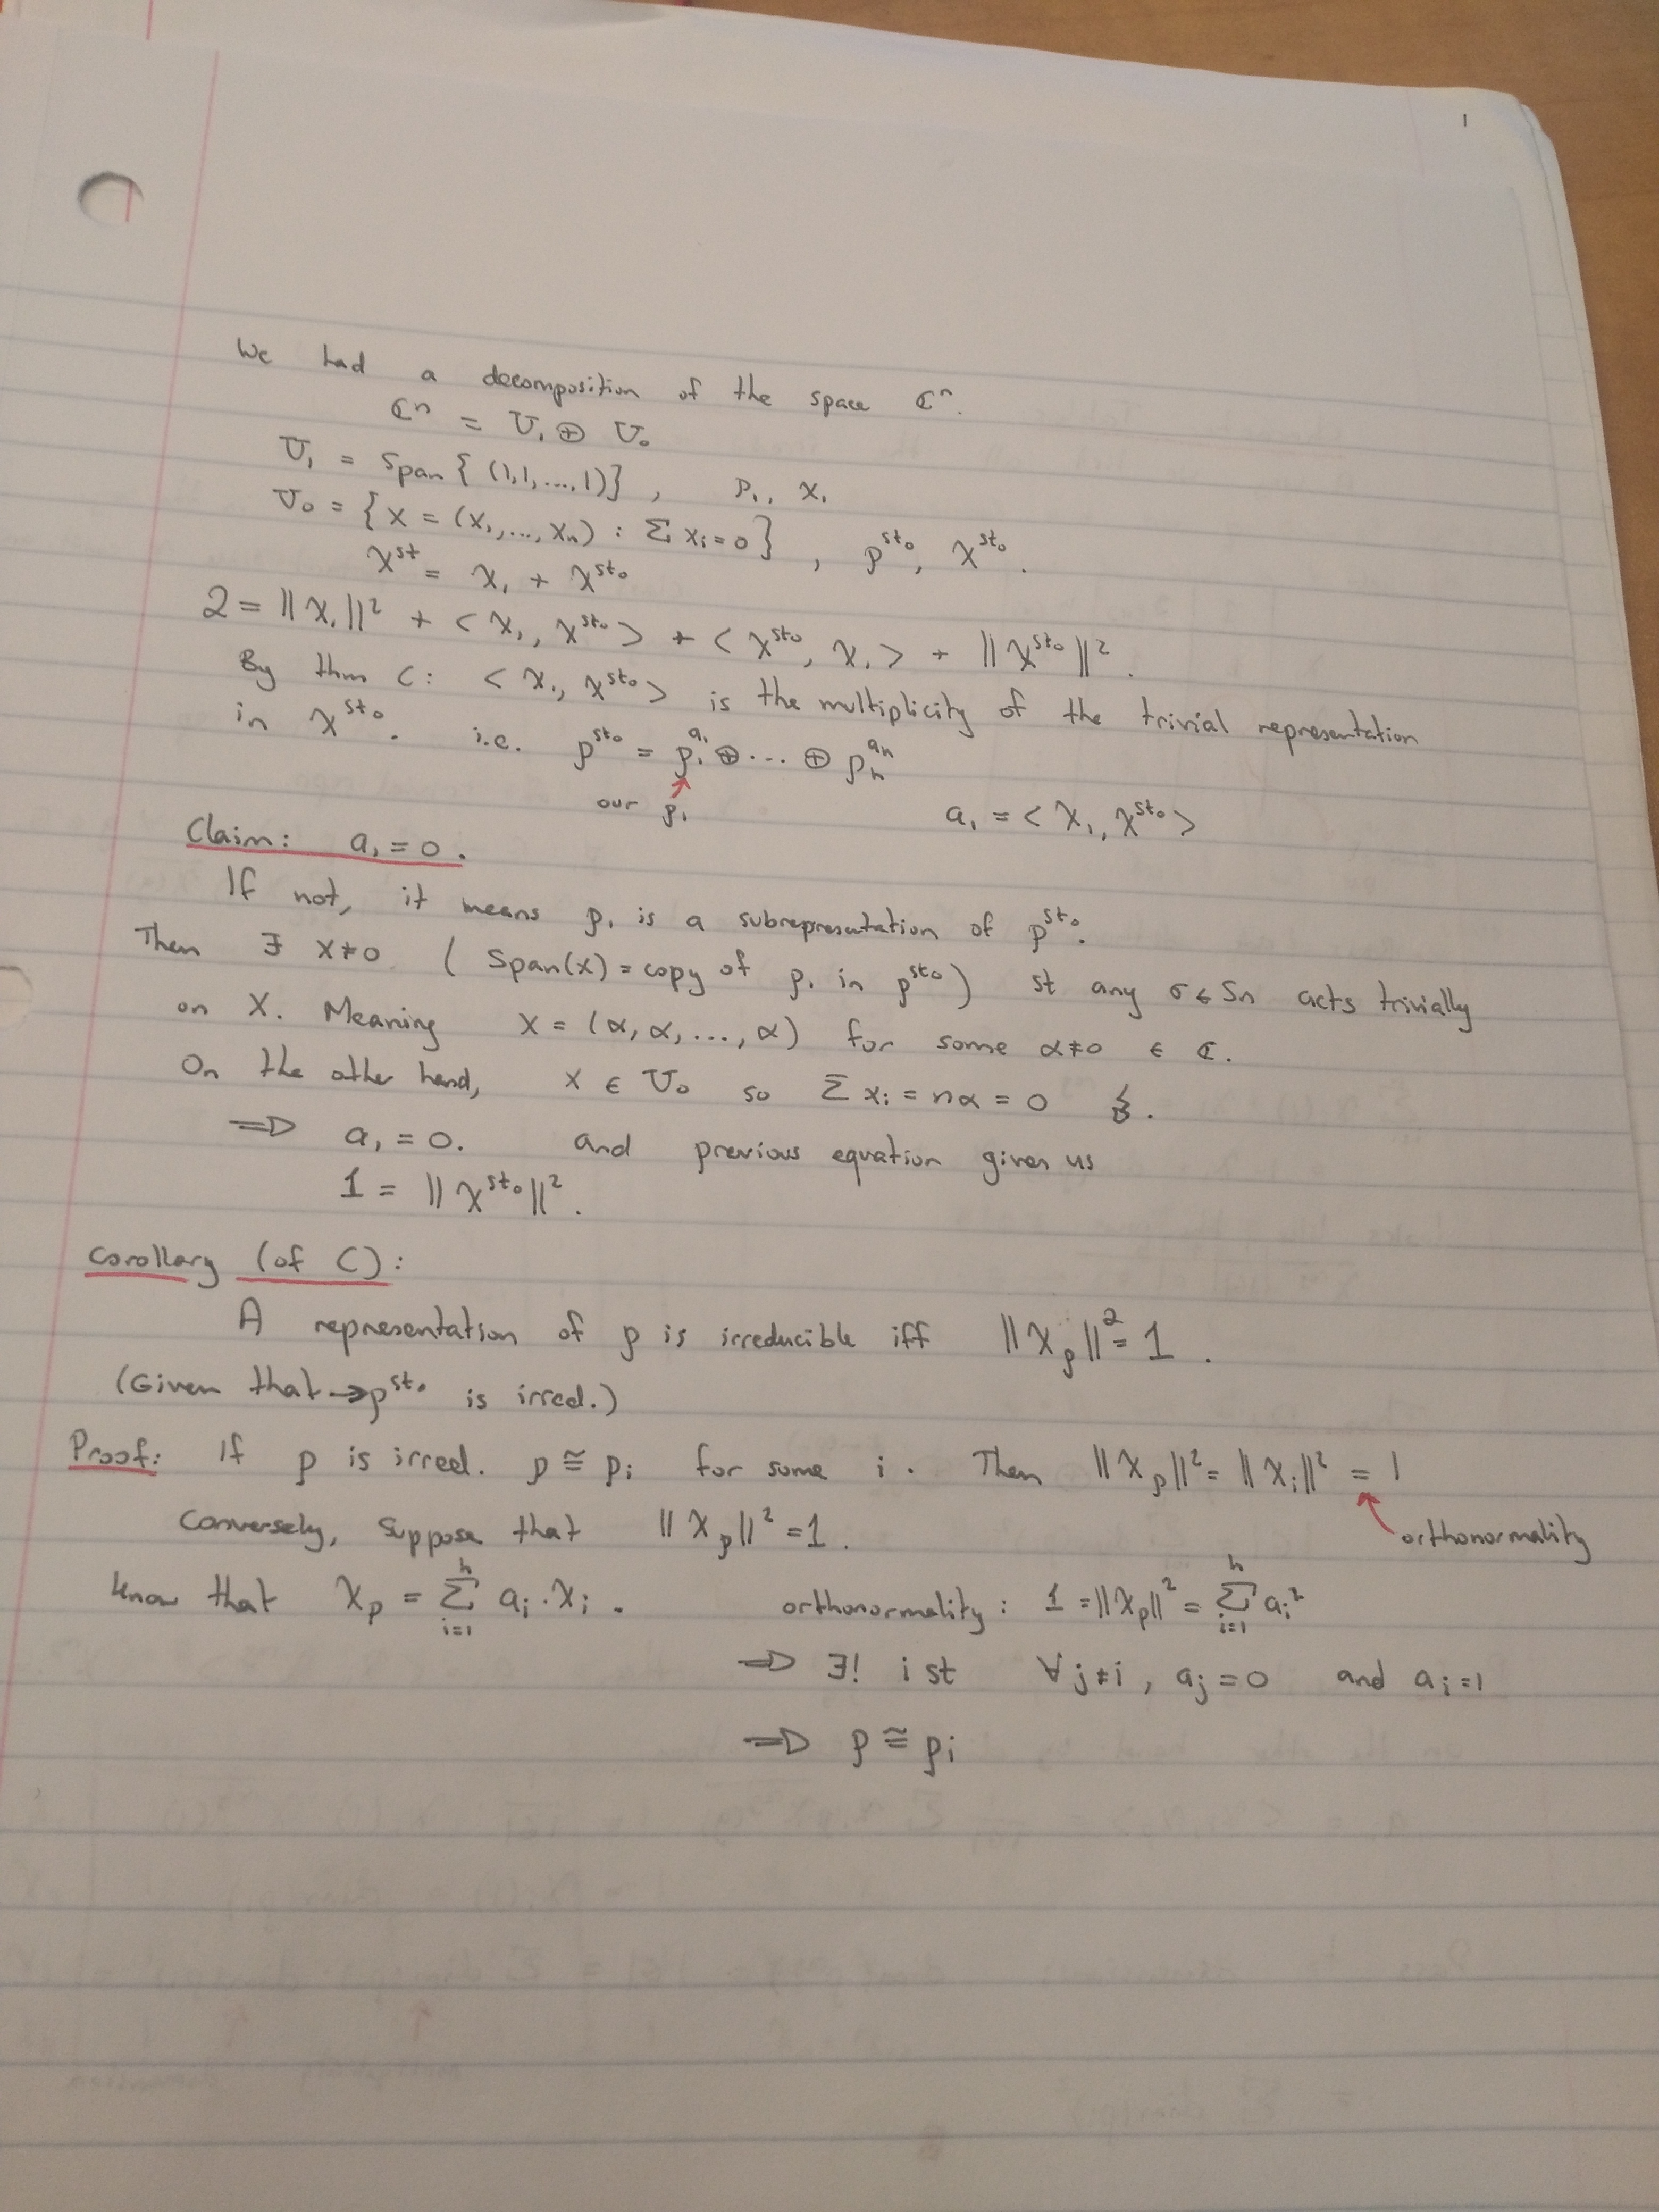 1
We had a decomposition of the space ℂⁿ.
ℂⁿ = U₁ ⊕ U₀
U₁ = Span{ (1,1,...,1)} , ρ₁, χ₁
U₀ = {x = (x₁,..., xₙ) : Σ xᵢ = 0} , ρ^{st₀}, χ^{st₀}.
χ^{st} = χ₁ + χ^{st₀}
2 = ||χ₁||² + <χ₁, χ^{st₀}> + <χ^{st₀}, χ₁> + ||χ^{st₀}||².
By thm C: <χ₁, χ^{st₀}> is the multiplicity of the trivial representation
in χ^{st₀}. i.e. ρ^{st₀} = ρ₁^{a₁} ⊕ ... ⊕ ρₕ^{aₕ}
our ρ₁ a₁ = <χ₁, χ^{st₀}>
Claim: a₁ = 0.
If not, it means ρ₁ is a subrepresentation of ρ^{st₀}.
Then ∃ x≠0 (Span(x) = copy of ρ₁ in ρ^{st₀}) st any σ ∈ Sn acts trivially
on x. Meaning x = (α, α, ..., α) for some α≠0 ∈ ℂ.
On the other hand, x ∈ U₀ so Σ xᵢ = nα = 0 ↯.
⟹ a₁ = 0. and previous equation gives us
1 = ||χ^{st₀}||².
Corollary (of C):
A representation of ρ is irreducible iff ||χ_ρ||² = 1.
(Given that → ρ^{st₀} is irred.)
Proof: If ρ is irred. ρ ≅ ρᵢ for some i. Then ||χ_ρ||² = ||χᵢ||² = 1
orthonormality
Conversely, suppose that ||χ_ρ||² = 1.
know that χ_ρ = Σ_{i=1}^{h} aᵢ·χᵢ. orthonormality: 1 = ||χ_ρ||² = Σ_{i=1}^{h} aᵢ²
⟹ ∃! i st ∀ j≠i, aⱼ = 0 and aᵢ = 1
⟹ ρ ≅ ρᵢ